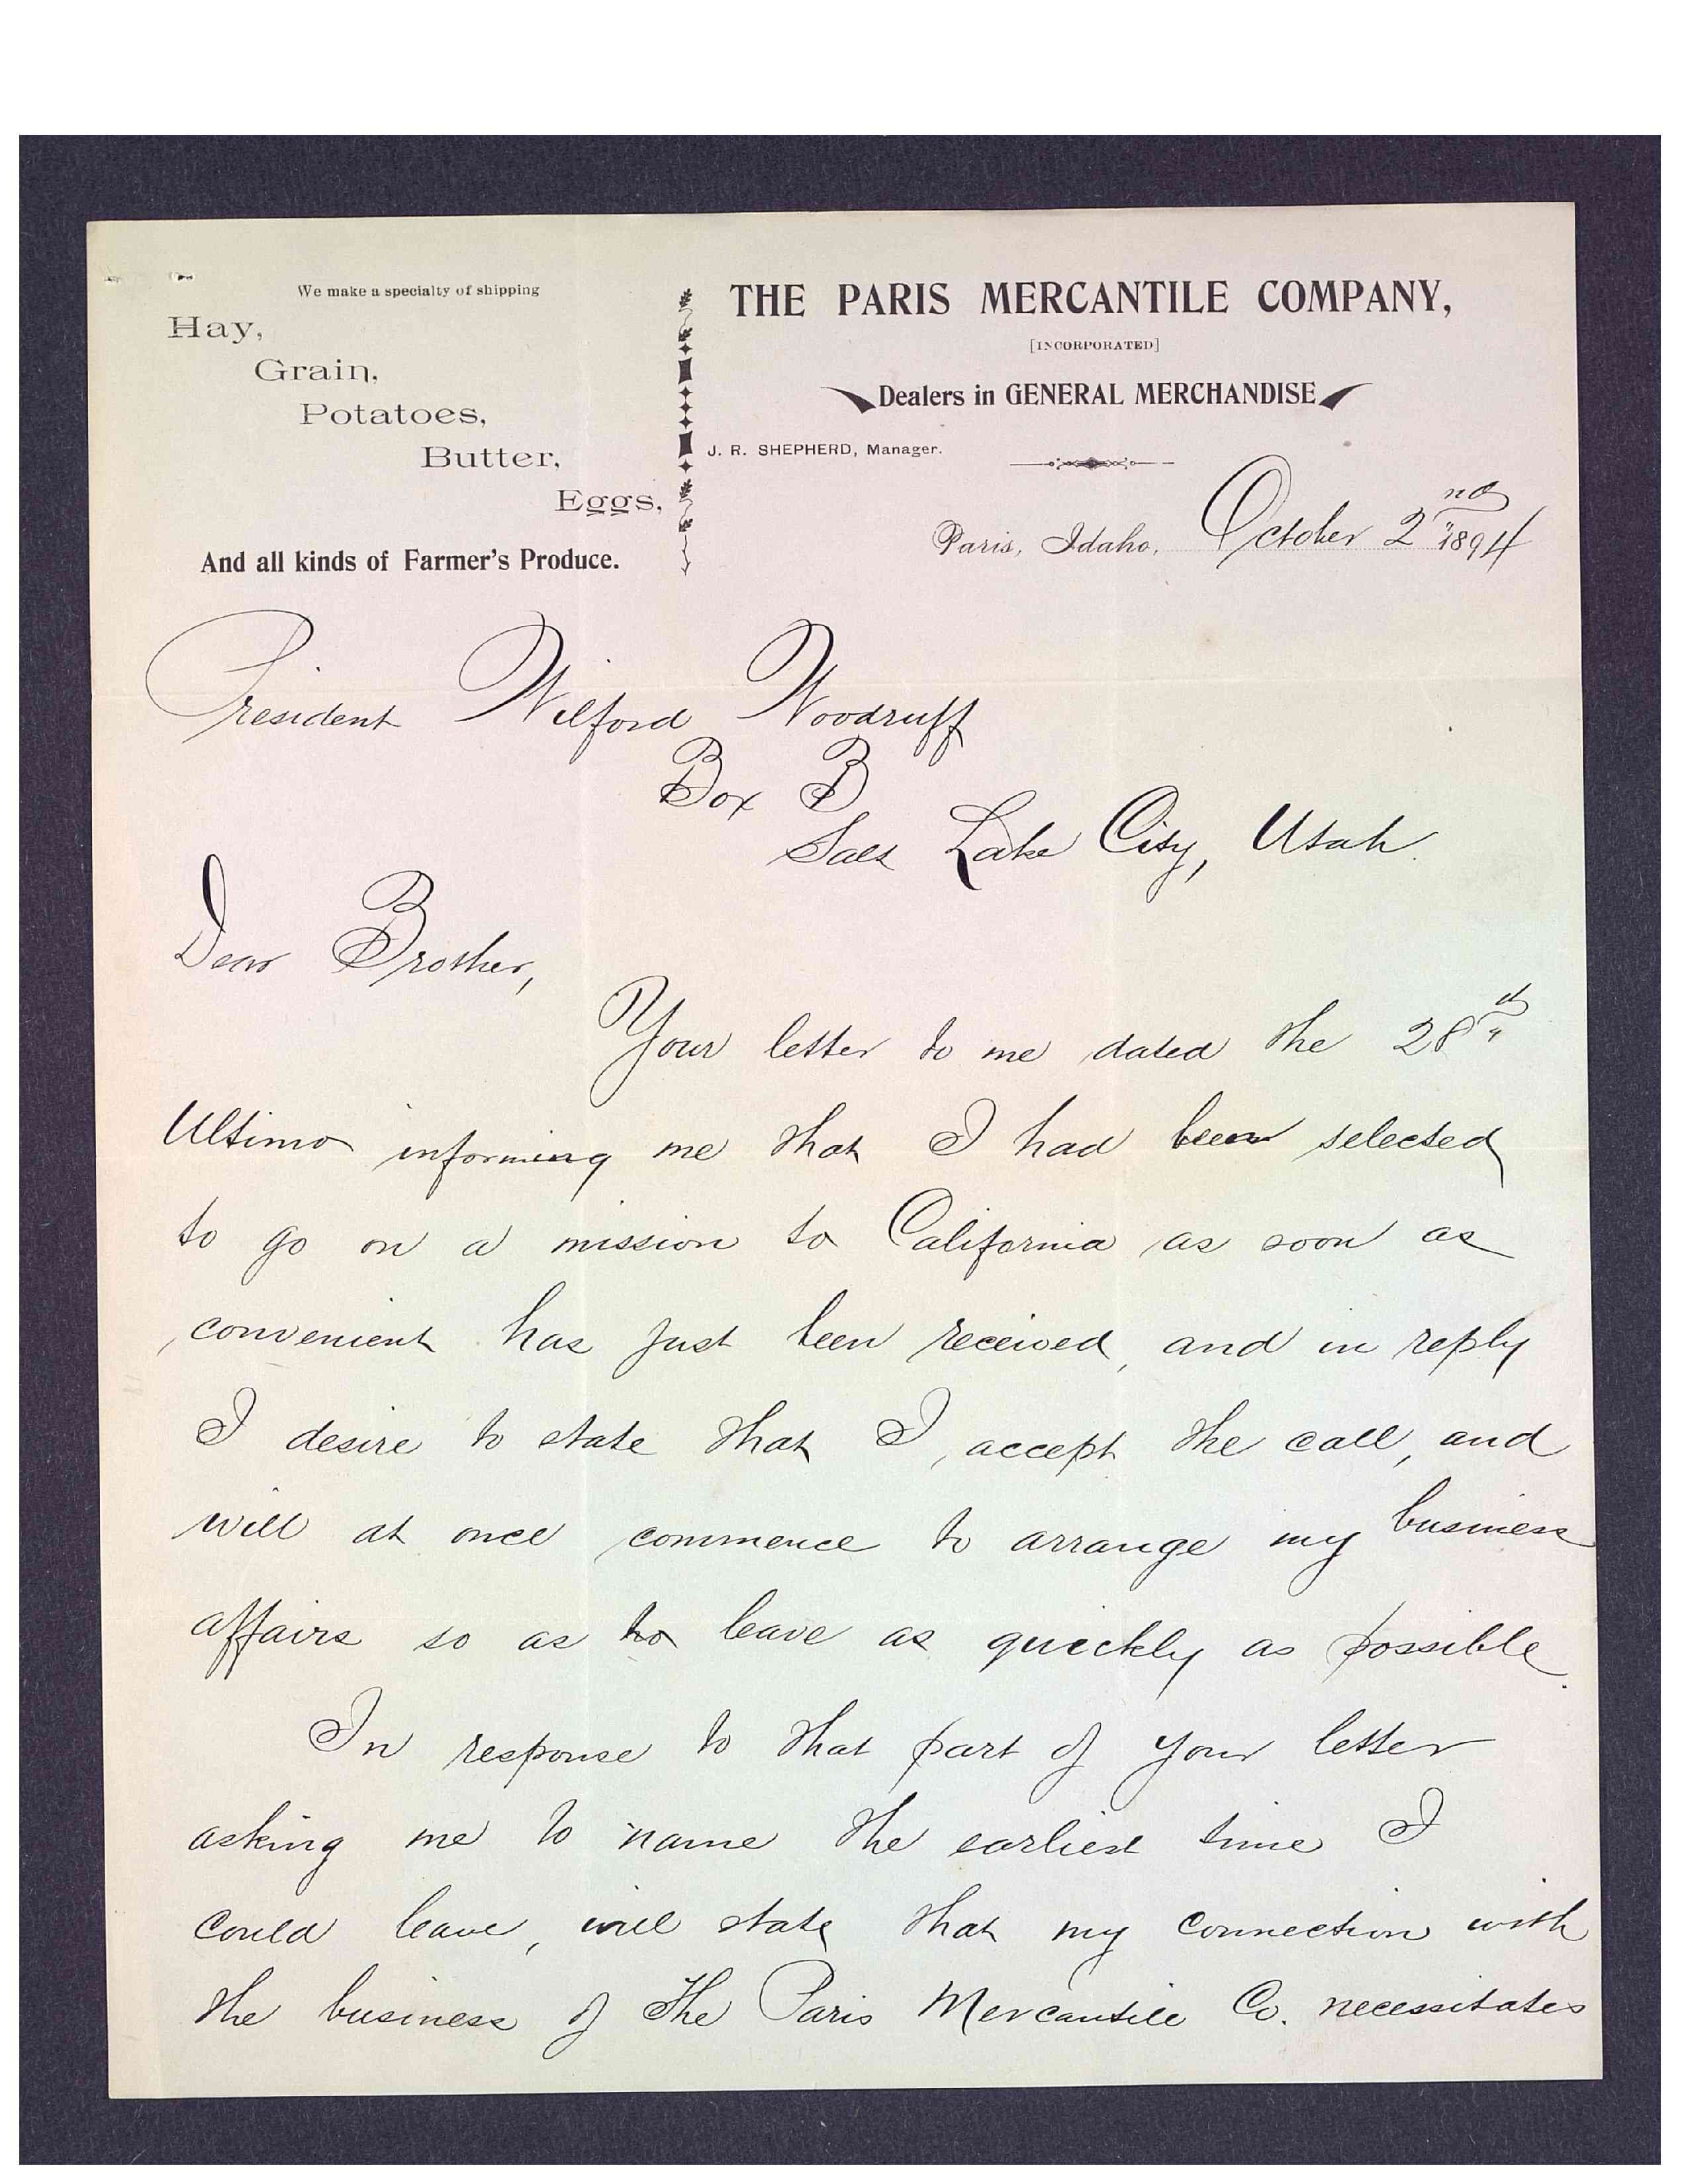 We make a specialty of shipping
Hay,
Grain,
Potatoes,
Butter,
Eggs,
And all kinds of Farmer's Produce.
THE PARIS MERCANTILE COMPANY,
[INCORPORATED]
Dealers in GENERAL MERCHANDISE
J. R. SHEPHERD, Manager.
Paris, Idaho, October 2nd 1894
President Wilford Woodruff
Box B
Salt Lake City, Utah.
Dear Brother,
Your letter to me dated the 28th
Ultimo informing me that I had been selected
to go on a mission to California as soon as
convenient has just been received, and in reply
I desire to state that I, accept the call, and
will at once commence to arrange my business
affairs so as to leave as quickly as possible.
In response to that part of your letter
asking me to name the earliest time I
could leave, will state that my connection with
the business of The Paris Mercantile Co. necessitates